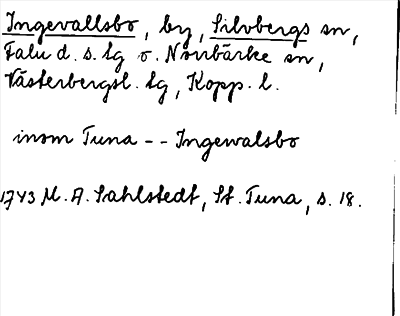 Ingevallsbo, by, Silvbergs sn,
Falu d. s. lg o. Norrbärke sn,
Västerbergsl. lg, Kopp. l.
inom Tuna -- Ingewalsbo
1743 M. A. Sahlstedt, St. Tuna, s. 18.